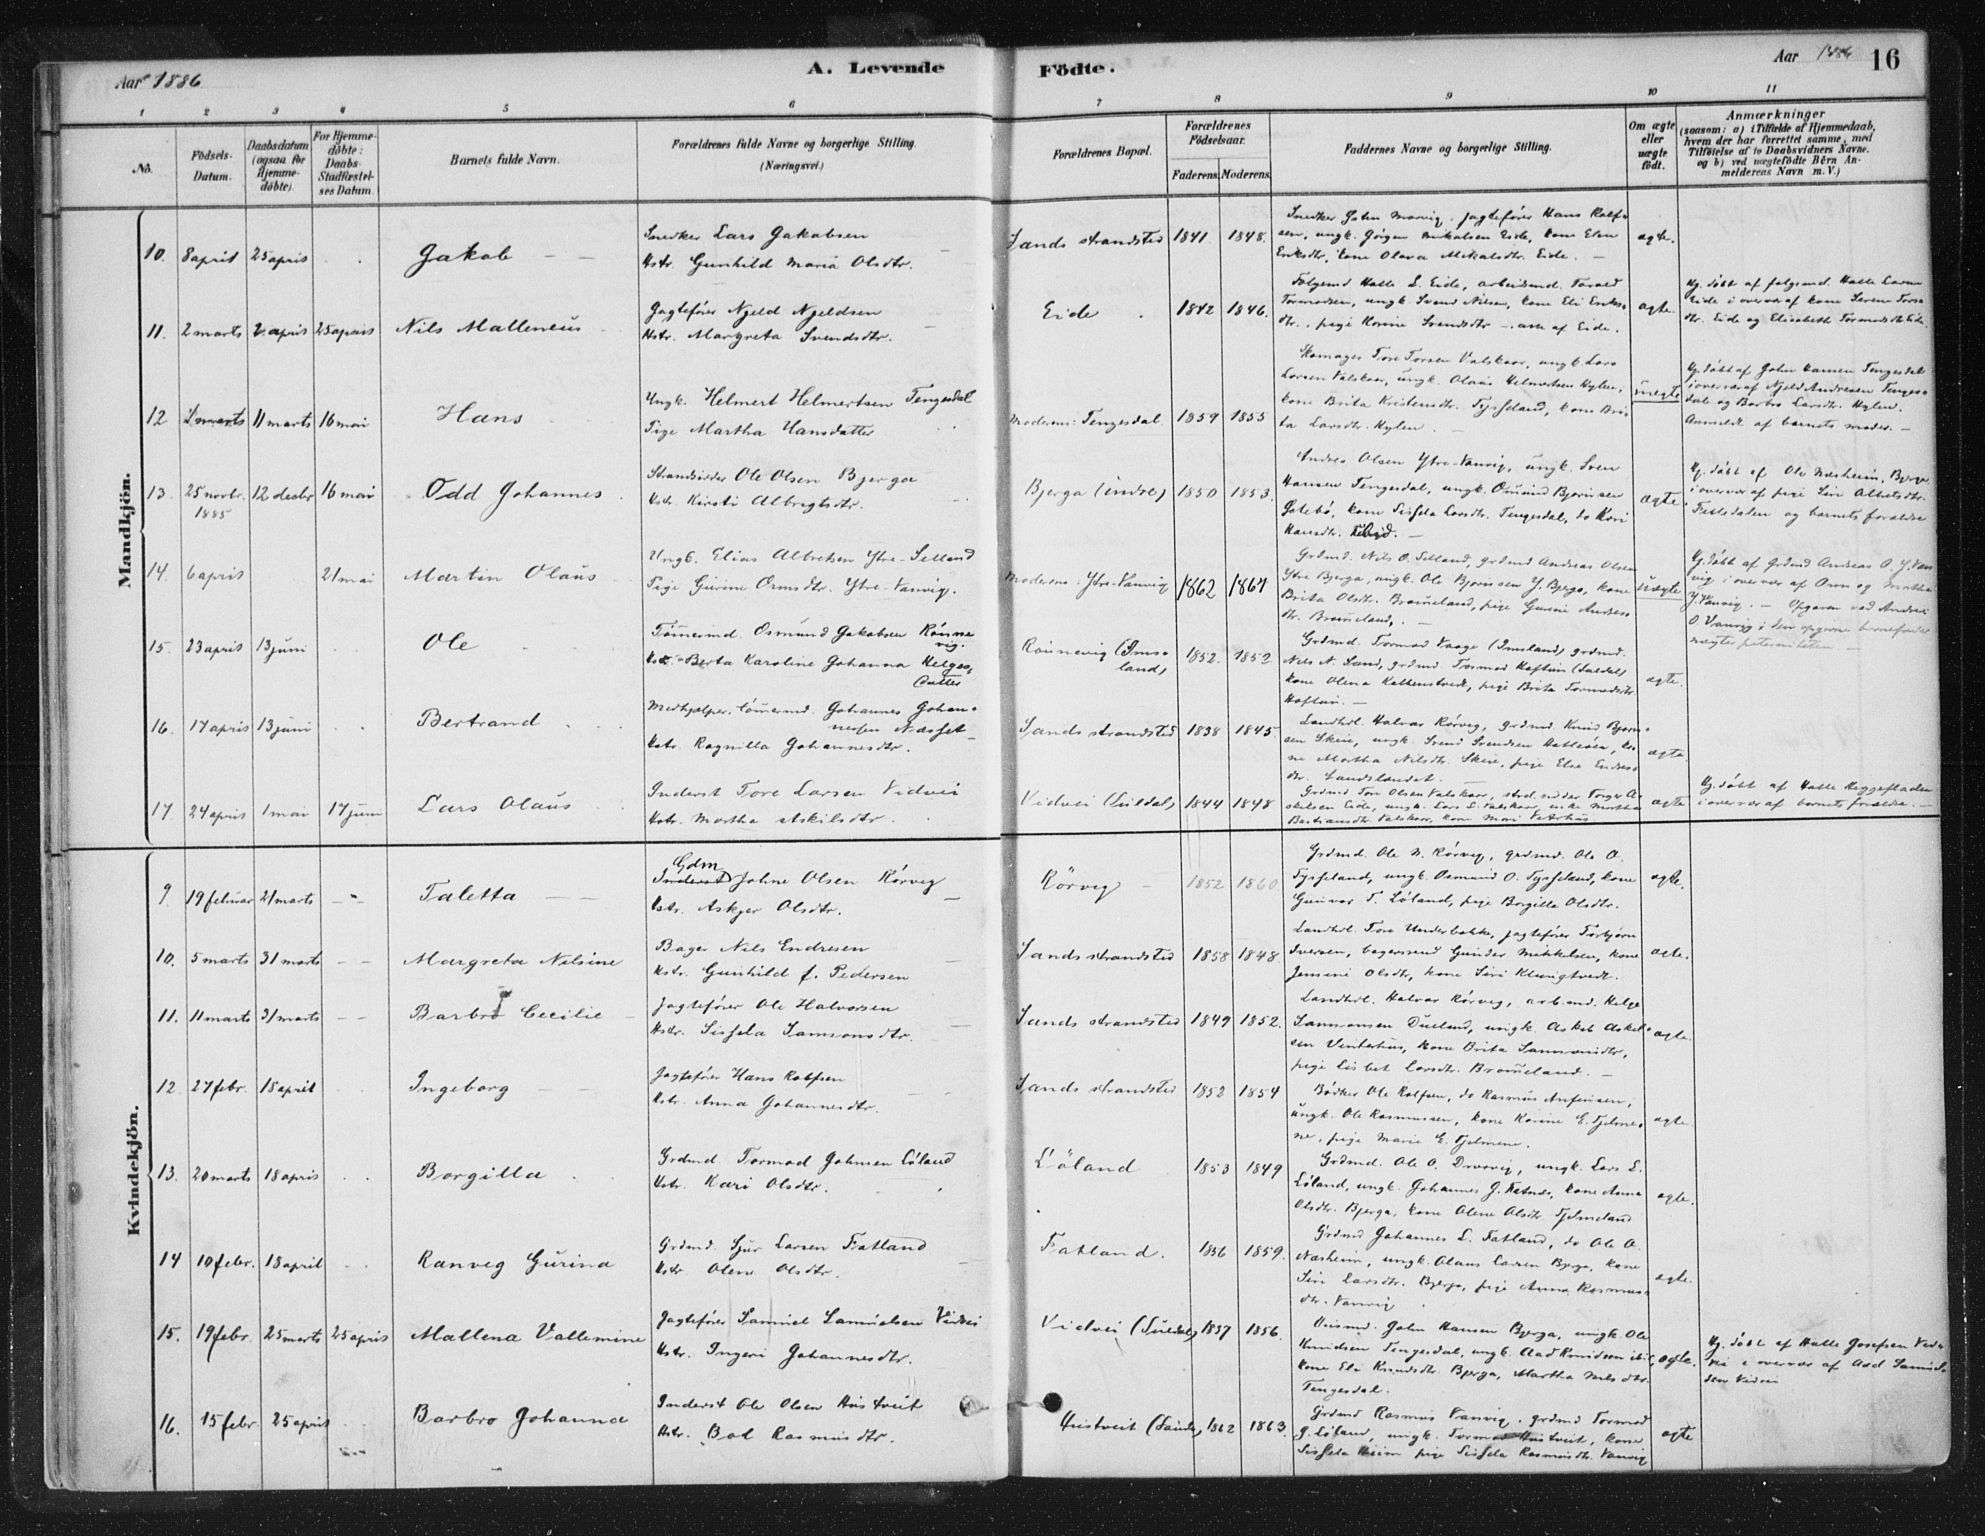 Aar 1886
A. Levende Fødte.
Aar 1886
16
1 2 3 4 5 6 7 8 9 10 11
No.
Födsels-Datum.
Daabsdatum (ogsaa for Hjemme-døbte).
For Hjemme-døbte: Daabs-Stadfæstel-ses Datum.
Barnets fulde Navn.
Forældrenes fulde Navne og borgerlige Stilling. (Næringsvei.)
Forældrenes Bopæl.
Forældrenes Födselsaar.
Faderens. Moderens.
Faddernes Navne og borgerlige Stilling.
Om ægte eller uægte födt.
Anmærkninger (saasom: a) i Tilfælde af Hjemmedaab, hvem der har forrettet samme, med Tilföielse af to Daabsvidners Navne, og b) ved uægtefödte Börn An-melderens Navn m. V.)
Mandkjön.
10. 8 april 25 april Jakob
Snedker Lars Jakobsen
Hstr. Gunhild Maria Olsdtr.
Sands strandsted 1841. 1848.
ungk. Jörgen Mikalsen Eide, kone Elen
Eriksdtr, kone Olava Mikalsdtr. Eide. ægte.
11. 2 marts 2 april 25 april Nils Malleneus
Jagtefører Njeld Njeldsen
Hstr. Margreta Svendsdtr.
Eide 1842 1846.
Fölgemd Halle L. Eide, arbeidsmd. Torald
Tormodsen, ungk Svend Nilsen, kone Eli Eriks-
dtr., pige Korine Svendsdtr - alle af Eide. ægte.
Hj. døbt af følgemd. Halle Larsen
Eide i overvær af kone Serene Tors-
dtr. Eide og Elisabeth Tormodsdtr Eide.
12 marts 11 marts 16 mai Hans
Ungk. Helmert Helmertsen Tengesdal
Pige Martha Hansdatter
Moderens: Tengesdal 1859 1855
Skomager Tore Torsen Valskaar, ungk Lars
Larsen Valskaar, ungk. Olaus Helmertsen Hylen,
kone Brita Kristensdtr. Tysseland, kone Bri-
ta Larsdtr. Hylen. uægte
Hj. døbt af John Hansen Tengesdal
i overvær af Njeld Andresen Tenges-
dal og Barbro Larsdtr. Hylen.
Anmeldt af barnets moder.
13. 25 novbr. 1885 12 decbr 16 mai Odd Johannes
Strandsidder Ole Olsen Bjerga
Hstr. Kirsti Albrigtsdtr.
Bjerga (indre) 1850 1853.
Andres Olsen Ytre-Vanvig, ungk. Sven
Hansen Tengesdal, ungk. Osmund Bjørnsen
kone Sissela Larsdtr. Tengesdal, do Kari
Hansdtr. ægte
Hj. døbt af Ole Næsheim, Bjerga
i overvær af pige Siri Albretsdtr.
og barnets forældre
14. 6 april 21 mai Martin Olaus
Ungk. Elias Albretsen Ytre-Selland
Pige Gurine Ormsdtr. Ytre-Vanvig.
Moderens: Ytre-Vanvig 1862 1867
Grdmd. Nils O. Selland, grdmd Andreas Olsen
Ytre Bjerga, ungk. Ole Bjørnsen Y. Bjerga, kone
Brita Olsdtr. Braueland, pige Gurine Anders-
dtr. Braueland. uægte
Hj. døbt af Grdmd Andreas O. Y. Van-
vig i overvær af Orm og Martha
Y. Vanvig. - Opgaven ved Andreas
O. Vanvig; den opgivne barnefader
nægter paterniteten.
15. 23 april 13 juni Ole
Tömmermd. Osmund Jakobsen Rönne-
vig.
Hstr. Berta Karoline Johanna Helges-
datter
Rönnevig (Ims-
land) 1852. 1852
Grdmd. Tormod Vaage (Imsland), grdmd.
Nils N. Sand, grdmd. Tormod Haftun (Suldal),
kone Olena pige Brita Tormodsdtr
Haftun. ægte.
16. 17 april 13 juni Bertrand
Medhjælper, tömmermd. Johannes Johan-
nessen Næsset
Hstr. Ragnilla Johannesdtr.
Sands strandsted 1838 1845.
Landhdl. Halvar Rörvig, grdmd. Knud Bjørn-
sen Skeie, ungk. Svend Svendsen ko-
ne Martha Nilsdtr. Skeie, pige Else Endres-
dtr. ægte
17. 24 april 1 mai 17 juni Lars Olaus
Inderst Tore Larsen Vidvei
Hstr. Martha Askilsdtr.
Vidvei (Suldal) 1844 1848
Grdmd Tore Olsen Valskaar,
ungk. Lars L. Valskaar, enke Martha
Bastiansdtr. Valskaar, kone Mari ægte
Hj. døbt af Halle
i overvær af barnets forældre.
Kvindekjön.
9. 19 februar 21 marts Taletta
Gdm
Inderst Johne Olsen Rörvig
Hstr. Askjer Olsdtr.
Rörvig 1852 1860
Grdmd. Ole N. Rörvig, grdmd. Ole O.
Tysseland, ungk Osmund O. Tysseland, kone
Gunvor T. Löland, pige Borgilla Olsdtr. ægte.
10. 5 marts 31 marts Margreta Nilsine
Bager Nils Endresen
Hstr. Gunhild f. Pedersen
Sands strandsted 1858 1848
Landhdl. Tore Underbakke, jagtefører Torbjørn
Iversen, bagersvend Gunder Mikkelsen, kone
Jensine Olsdtr, kone Siri ægte.
11. 11 marts 31 marts Barbro Cecilie
Jagtefører Ole Halvorsen
Hstr. Sissela Samsonsdtr.
Sands strandsted 1849 1852.
Landhdl. Halvar Rörvig, arb.md. Helge
Samsonsen ungk. Askel Askel-
sen Vinterhus, kone Brita Samsonsdtr,
pige Lisbet Larsdtr. Braueland. ægte.
12. 27 febr. 18 april Ingeborg
Jagtefører Hans Rolfsen
Hstr. Anna Johannesdtr.
Sands strandsted 1852 1854
Bödker Ole Rolfsen, do Rasmus
ungk. Ole Rasmussen, kone Korine E. Fjelme-
ne, pige Marie E. Fjelmene. ægte.
13. 20 marts 18 april Borgilla
Grdmd Tormod Johnsen Löland
Hstr. Kari Olsdtr.
Löland 1853 1849
Grdmd. Ole O. ungk. Lars L.
Löland, ungk. Johannes J. kone Anna
Olsdtr. Bjerga, kone Olene Olsdtr. ægte.
14 10 febr. 18 april Ranveg Gurina
Grdmd. Sjur Larsen Fatland
Hstr. Olene Olsdtr.
Fatland. 1859.
Grdmd Johannes L. Fatland, do Ole O.
Næsheim, ungk. Olaus Larsen Bjerga, kone
Siri Larsdtr. Bjerga, pige Anna Rasmus-
dtr. Vanvig ægte.
15. 19 febr. 25 marts 25 april Mallena Vallemine
Jagtefører Samuel Samuelsen Vidvei
Hstr. Ingeri Johannesdtr.
Vidvei (Suldal) 1837 1856.
John Hansen Bjerga, ungk. Ole
Knudsen Tengesdal, ungk. Aad Knudsen
kone Eli Knudsdtr. Bjerga, Martha Nilsdtr.
Tengesdal. ægte.
Hj. døbt af Halle Josefsen Vid-
vei i overvær af Aad Samuel-
sen Vidvei
16. 15 febr. 25 april Barbro Johanna
Inderst Ole Olsen Hustveit
Hstr. Bol Rasmusdtr.
Hustveit (Sauda) 1862 1863.
Grdmd Rasmus Vanvig, grdmd Tormod
J. Löland, ungk. Tormod Hustveit, kone
Sissela pige Sissela Rasmusdtr. Vanvig ægte